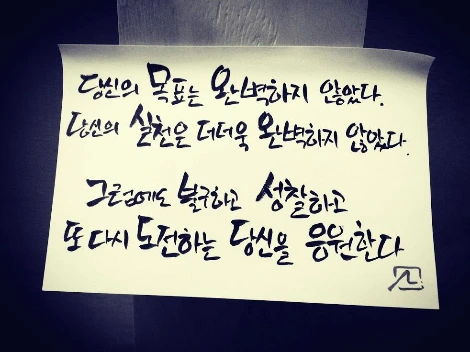 당신의 목표는 완벽하지 않았다.
당신의 실천은 더더욱 완벽하지 않았다.
그럼에도 불구하고 성찰하고
또 다시 도전하는 당신을 응원한다